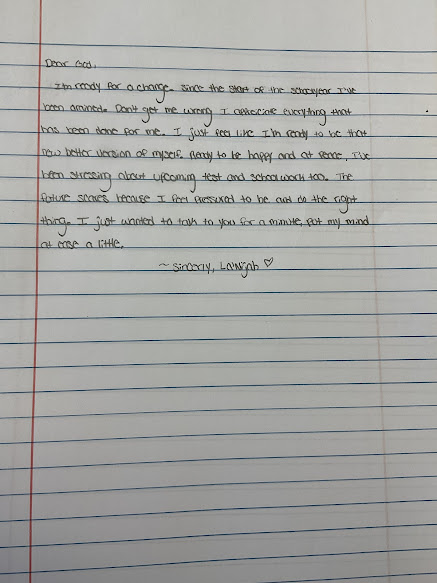 Dear God,
I'm ready for a change. Since the start of the schoolyear I've
been drained. Don't get me wrong I appreciate everything that
has been done for me. I just feel like I'm ready to be that
new better version of myself. Ready to be happy and at peace, I've
been stressing about upcoming test and schoolwork too. The
future scares because I feel pressured to be and do the right
thing. I just wanted to talk to you for a minute, put my mind
at ease a little.
~ Sincerly,